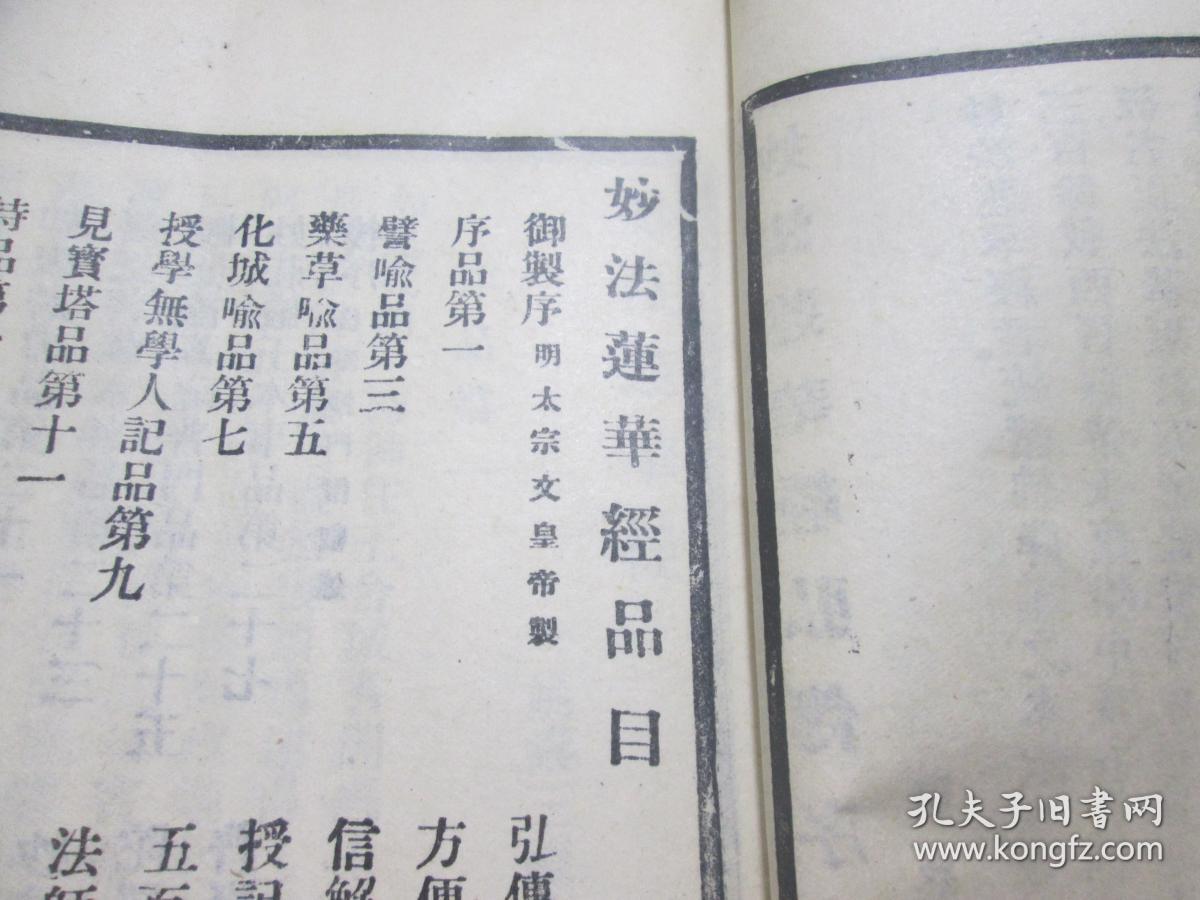 妙法蓮華經品目
御製序 明太宗文皇帝製
弘傳
序品第一
方便
譬喻品第三
信解
藥草喻品第五
授記
化城喻品第七
五百
授學無學人記品第九
法師
見寶塔品第十一
持品第
孔夫子旧书网
www.kongfz.com